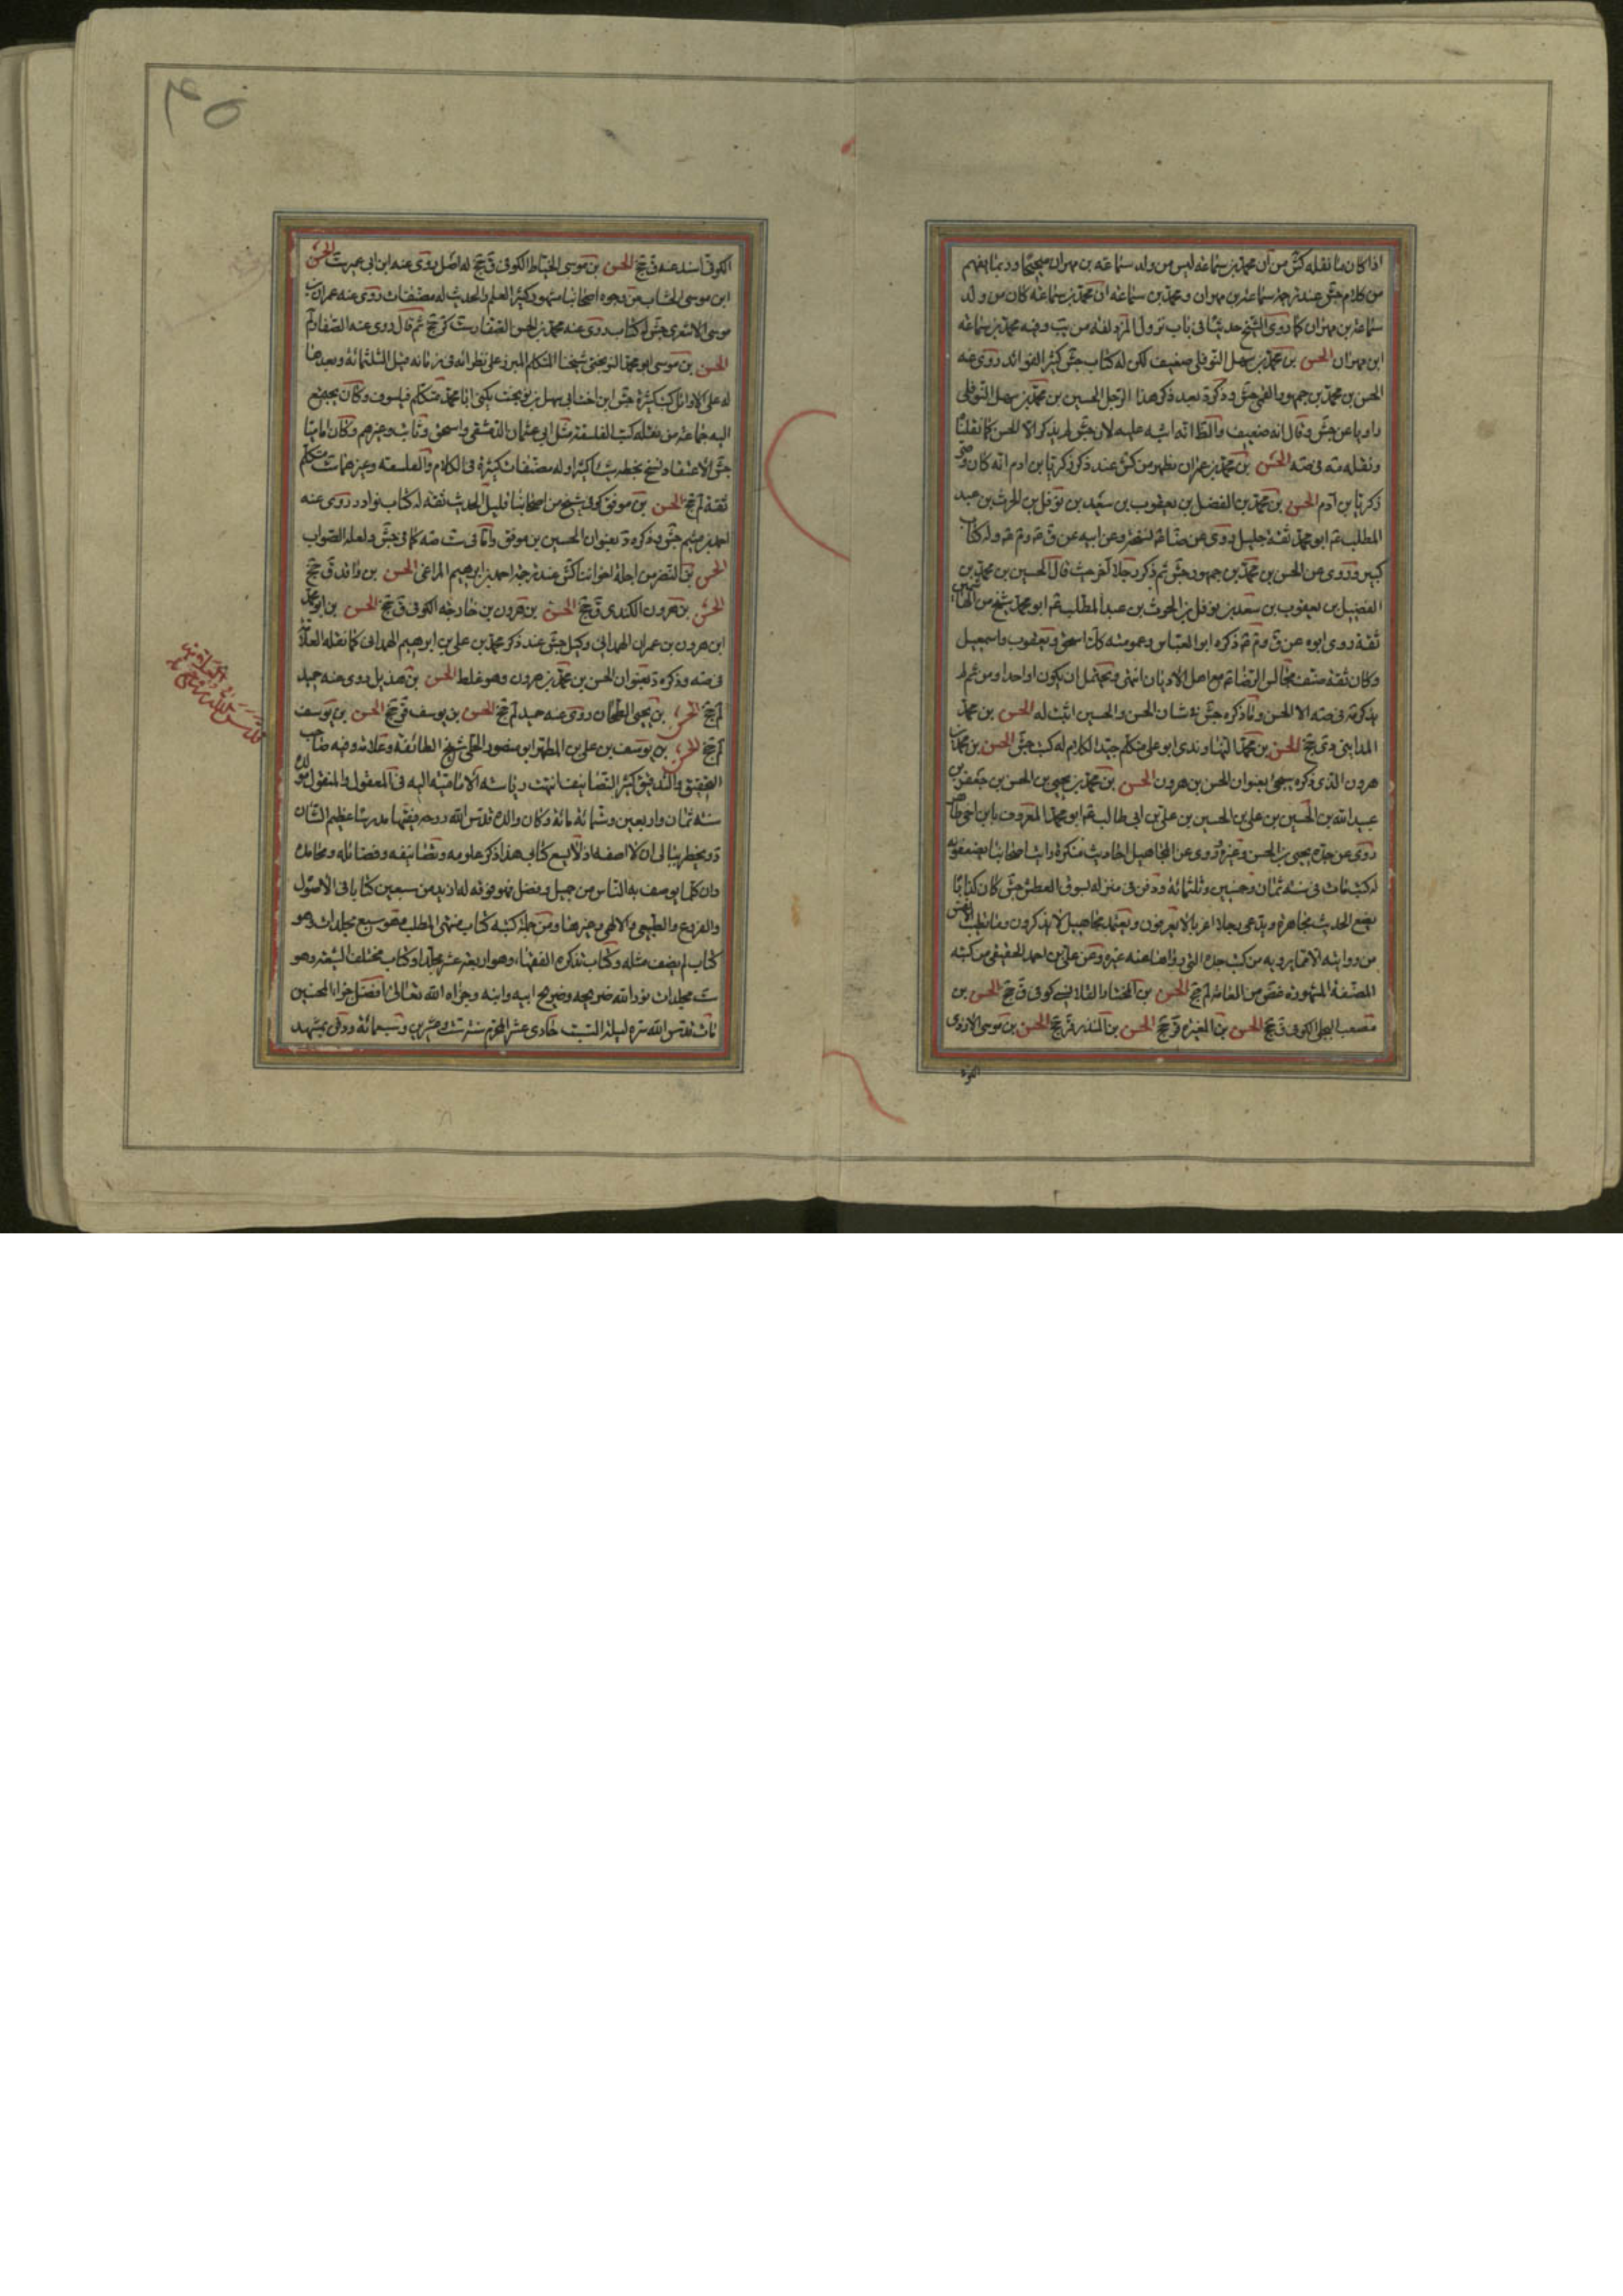 اذا كان ما نقله كش من ان محمد بن سماعة ليس من ولد سماعة بن مهران صحيحا وربما يفهم
من كلام جش عند ترجمة سماعة بن مهران ومحمد بن سماعة ان محمد بن سماعة كان من ولد
سماعة بن مهران كما روى الشيخ حديثا في باب نزول المزدلفة من يب وفيه محمد بن سماعة
ابن مهران الحسن بن محمد بن سهل النوفلي ضعيف لكن له كتاب جش كثير الفوائد روى عنه
الحسن بن محمد بن جمهور العمي جش وذكره د بعد ذكر هذا الرجل الحسين بن محمد بن سهل النوفلي
راويا عن جش وقال انه ضعيف والظ انه اشتبه عليه لان جش لم يذكر الا الحسن كما نقلنا
ونقله مه في صه الحسن بن محمد بن عمران يظهر من كش عند ذكر زكريا بن ادم انه كان وصي
زكريا بن آدم الحسن بن محمد بن الفضل بن يعقوب بن سعيد بن نوفل بن الحرث بن عبد
المطلب ابو محمد ثقة جليل روى عن الرضا نسخة وعن ابيه عن وله كتاب
كبير وروى عن الحسن بن محمد بن جمهور جش ثم ذكر رجلا آخر حيث قال الحسين بن محمد بن
الفضل بن يعقوب بن سعد بن نوفل بن الحرث بن عبد المطلب ابو محمد شيخ من الهاشميين
ثقة روى ابوه عن ذكره ابو العباس وعمومته كذا اسحق ويعقوب واسمعيل
وكان ثقة صنف مجالس الرضا مع اهل الاديان انتهى ويحتمل ان يكون واحدا ومن ثم لم
يذكره في صه الا الحسن وما ذكره جش في شان الحسن والحسين اثبت له الحسن بن محمد
المدايني دى جخ الحسن بن محمد النهاوندى ابو علي متكلم جيد الكلام له كتب جش الحسن بن محمد بن
هرون الذى ذكره سيجئ بعنوان الحسن بن هرون الحسن بن محمد بن يحيى بن الحسن بن جعفر بن
عبيد الله بن الحسين بن علي بن الحسين بن علي بن ابي طالب ابو محمد المعروف بابن اخي طاهر
روى عن جده يحيى بن الحسن وغيره وروى عن المجاهيل احاديث منكرة رايت اصحابنا يضعفونه
له كتب مات في سنة ثمان وخمسين وثلثمائة ودفن في منزله بسوق العطش جش كان كذابا
يضع الحديث مجاهرة ويدعى رجالا غربا لا يعرفون ويعتمد مجاهيل لا يذكرون وما تطيب الانفس
من روايته الا فيما يرويه من كتب جده التي رواها عنه غيره وعن علي بن احمد العقيقي من كتبه
المصنفة المشهورة غض من العامة لم جخ الحسن بن المختار القلانسي كوفي ق جخ الحسن بن
مصعب البجلي الكوفي ق جخ الحسن بن المغيرة ق جخ الحسن بن المنذر ق جخ الحسن بن موسى الازدى
الكوفي
٤٥
الكوفي اسند عنه ق جخ الحسن بن موسى الحناط الكوفي ق جخ له اصل روى عنه ابن ابي عمير ست الحسن
ابن موسى الخشاب من وجوه اصحابنا مشهور كثير العلم والحديث له مصنفات روى عنه عمران بن
موسى الاشعرى جش له كتاب روى عنه محمد بن الحسن الصفار ست كر جخ ثم قال روى عنه الصفار لم
الحسن بن موسى ابو محمد النوبختي شيخنا المتكلم المبرز على نظرائه في زمانه قبل الثلثمائة وبعدها
له على الاوائل كتب كثيرة جش ابن اخت ابي سهل بن نوبخت يكنى ابا محمد متكلم فيلسوف وكان يجتمع
اليه جماعة من نقله كتب الفلسفة مثل ابي عثمان الدمشقي واسحق وثابت وغيرهم وكان اماميا
حسن الاعتقاد ونسخ بخطه شيئا كثيرا وله مصنفات كثيرة في الكلام والفلسفة وغيرهما ست متكلم
ثقة لم جخ الحسن بن موفق كوفي شيخ من اصحابنا قليل الحديث ثقة له كتاب نوادر روى عنه
احمد بن ميثم جش وذكره د بعنوان الحسين بن موفق واما في ست صه كما في جش ولعله الصواب
الحسن بن النضر من اجلة اخواننا كش عند ترجمة احمد بن ابرهيم المراغي الحسن بن واقد ق جخ
الحسن بن هرون الكندى ق جخ الحسن بن هرون بن خارجة الكوفي ق جخ الحسن بن ابو محمد
ابن هرون بن عمران الهمداني وكيل جش عند ذكر محمد بن علي بن ابرهيم الهمداني كما نقله العلامة
في صه وذكره د بعنوان الحسن بن محمد بن هرون وهو غلط الحسن بن هذيل روى عنه حميد
لم جخ الحسن بن يحيى الطحان روى عنه حميد لم جخ الحسن بن يوسف ق جخ الحسن بن يوسف
لم جخ الحسن بن يوسف بن علي بن المطهر ابو منصور الحلي شيخ الطائفة وعلامة وقته صاحب
التحقيق والتدقيق كثير التصانيف انتهت رياسة الامامية اليه في المعقول والمنقول مولده
سنة ثمان واربعين وستمائة وكان والده قدس الله روحه فقيها مدرسا عظيم الشان
د ويخطر ببالي ان لا اصفه اذ لا يسع كتابي هذا ذكر علومه وتصانيفه وفضائله ومحامده
وان كلما يوصف به الناس من جميل وفضل فهو فوقه له ازيد من سبعين كتابا في الاصول
والفروع والطبيعي والالهي وغيرها ومن جملة كتبه كتاب منتهى المطلب فهو سبع مجلدات وهو
كتاب لم يصنف مثله وكتاب تذكرة الفقهاء وهو اربعة عشر مجلدا وكتاب مختلف الشيعة وهو
ست مجلدات نور الله ضريحه وضريح ابيه وابنه وجزاه الله تعالى افضل جزاء المحسنين
مات قدس الله سره ليلة السبت حادى عشر المحرم سنة ست وعشرين وسبعمائة ودفن بمشهد